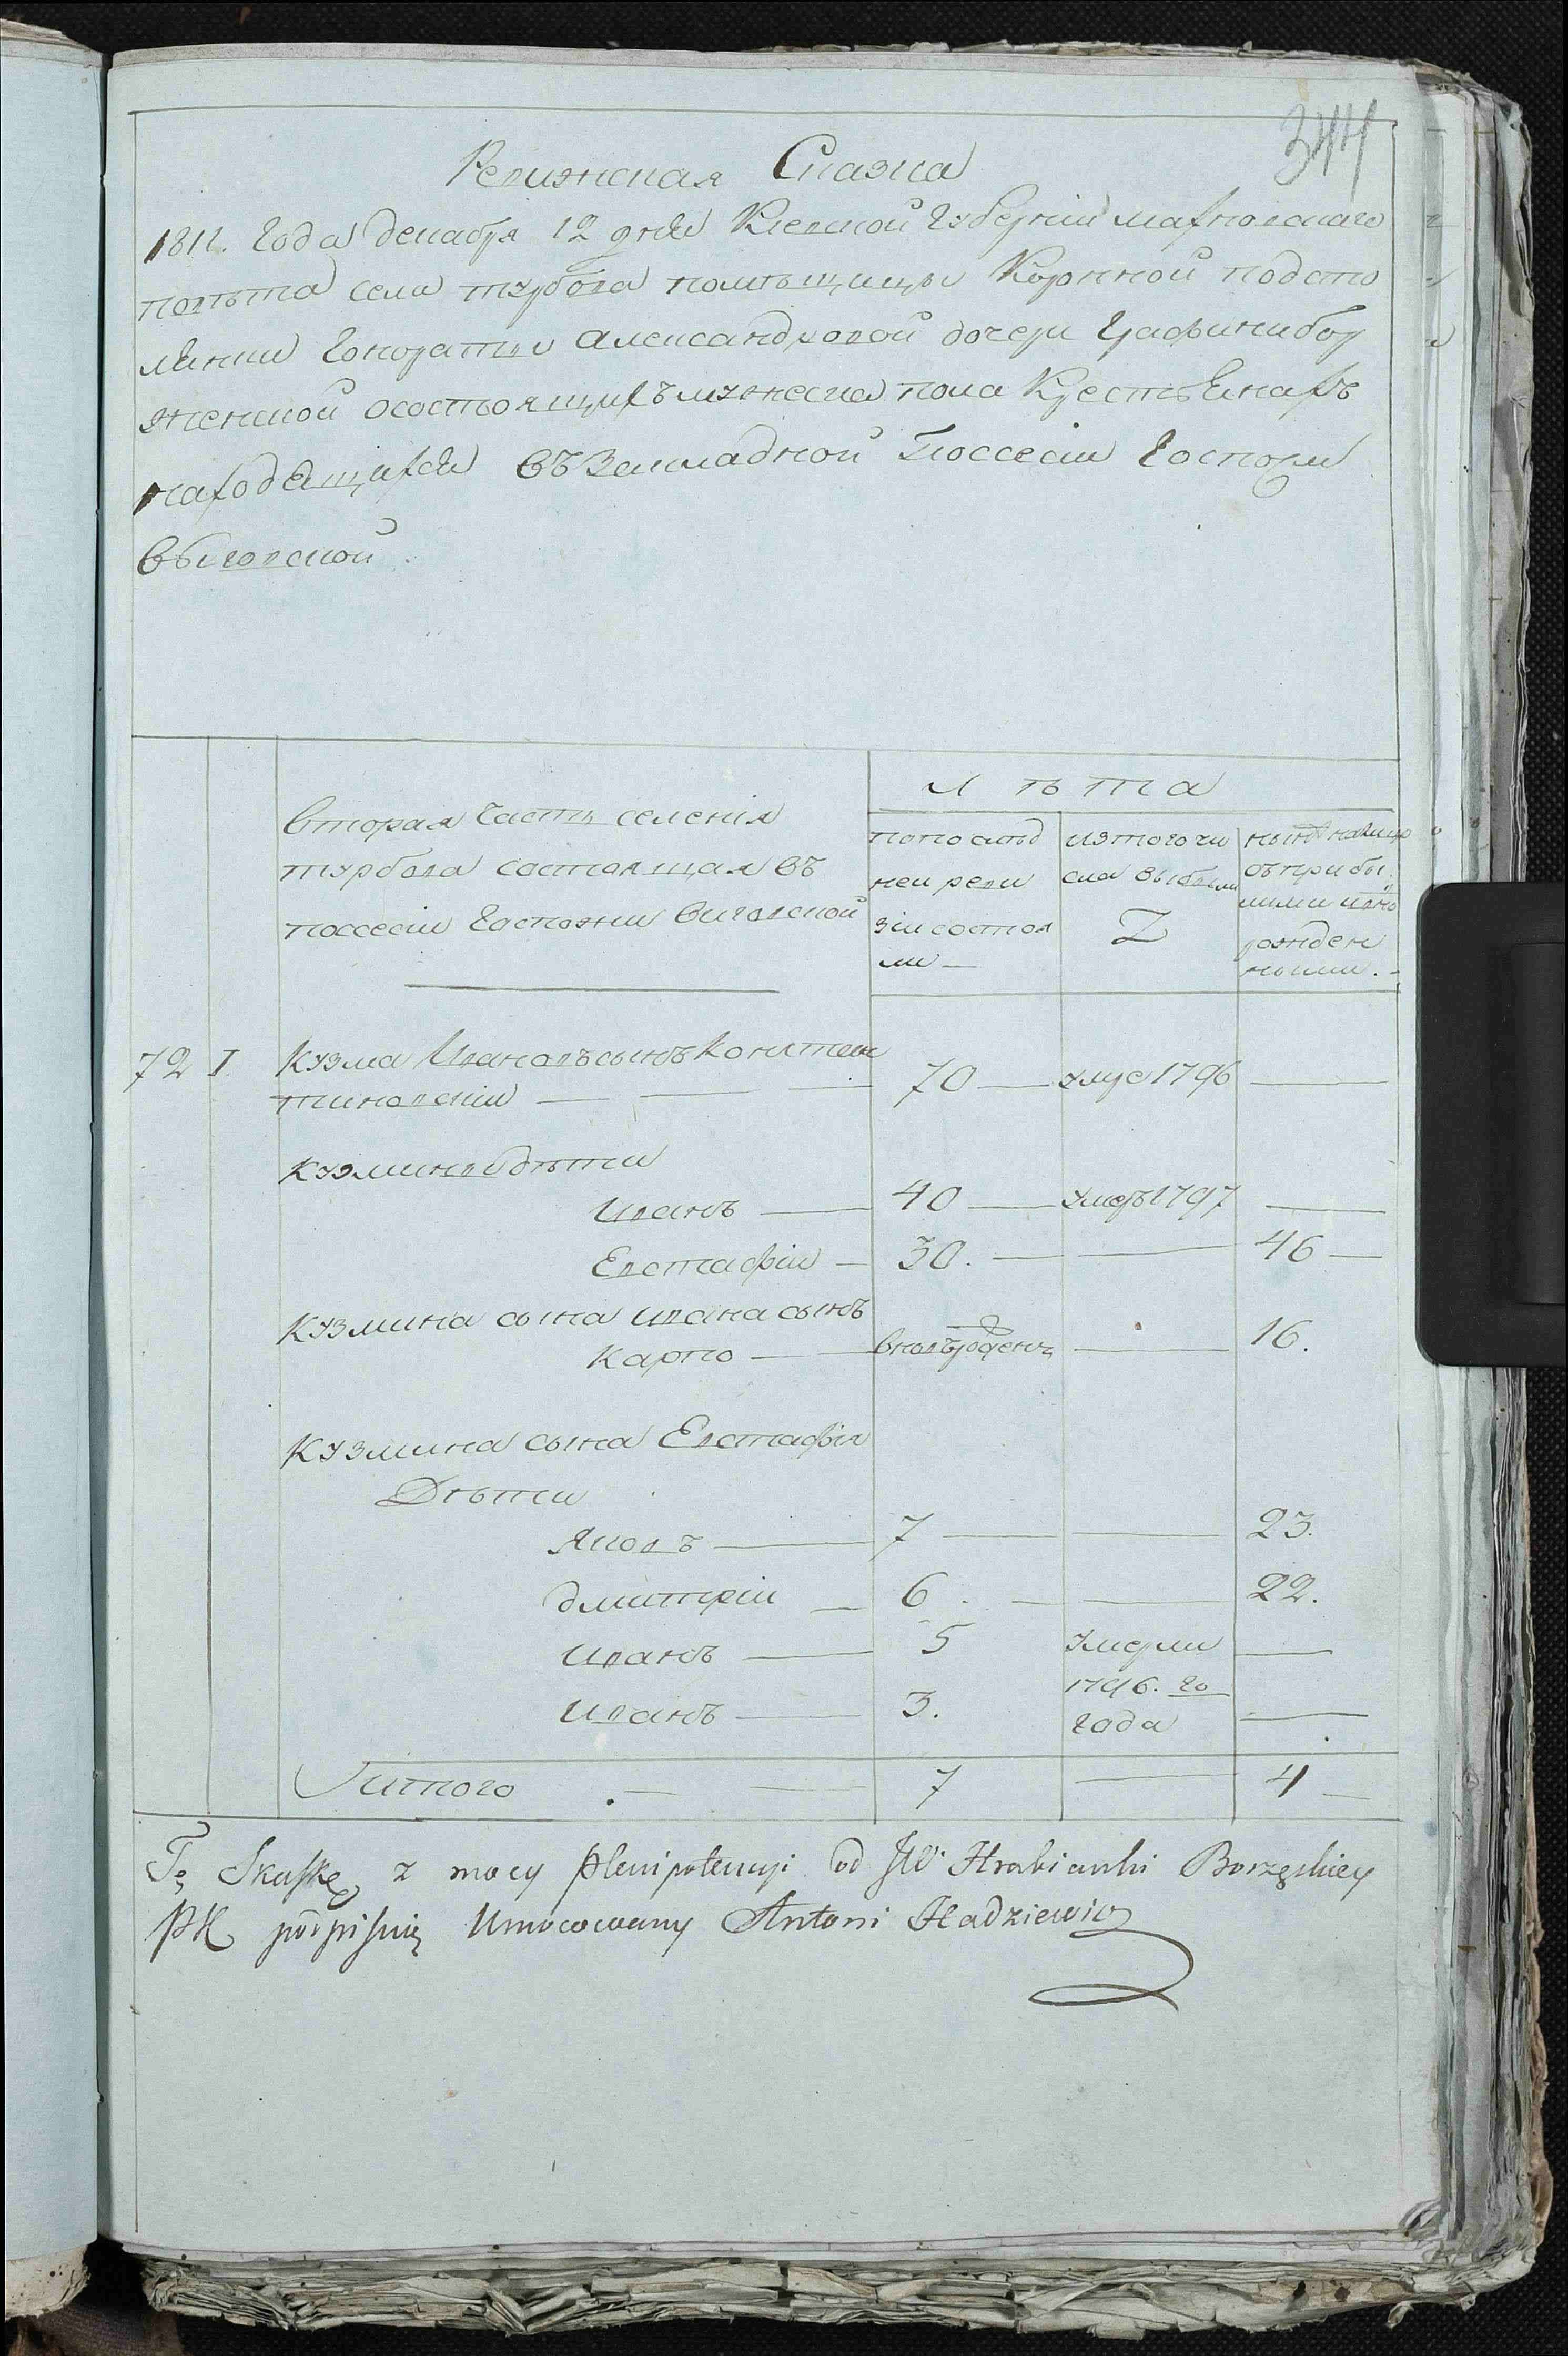 344
Ревизская Сказка
1811. Года декабря 12 дня Киевской Губернiи махновскаго
повѣта села турбова помѣщицы Коронной подсто
лянки Гонораты Александровой дочери Графини бор
женской осостоящихъ мужеска пола Крестьянахъ
находящихся въ Закладной Поссесiи Госпожи
выговской
вторая часть селенiя
турбова состоящая въ
поссесiи Госпожи виговской
л ѣ т а
попослѣд
ней реви
зiи состоя
ли —
изтого чи
сла выбыли
нынѣ налицо
съ прибы
лыми
рожден
ными. —
72 I. Кузма Ивановъ сынъ Констан
тиновскiи — — 70 — умре 1796 —
Кузмины дѣти
Иванъ — 40 — умеръ 1797 —
Евстафiи — 30. — — 46 —
Кузмина сына ивана сынъ
Карпо — вновьрожденъ — 16.
Кузмина сына Евстафiя
Дѣти
Яковъ — 7 — — 23.
дмитрiи — 6. — — 22.
Иванъ — 5 умерли —
Иванъ — 3. 1796. го года —
Итого — — 7 — 4 —
Tę Skaskę z mocy Plenipotencyi od JW. Hrabianki Borzęskiey
PK podpisuię Umocowany Antoni Hadziewicz